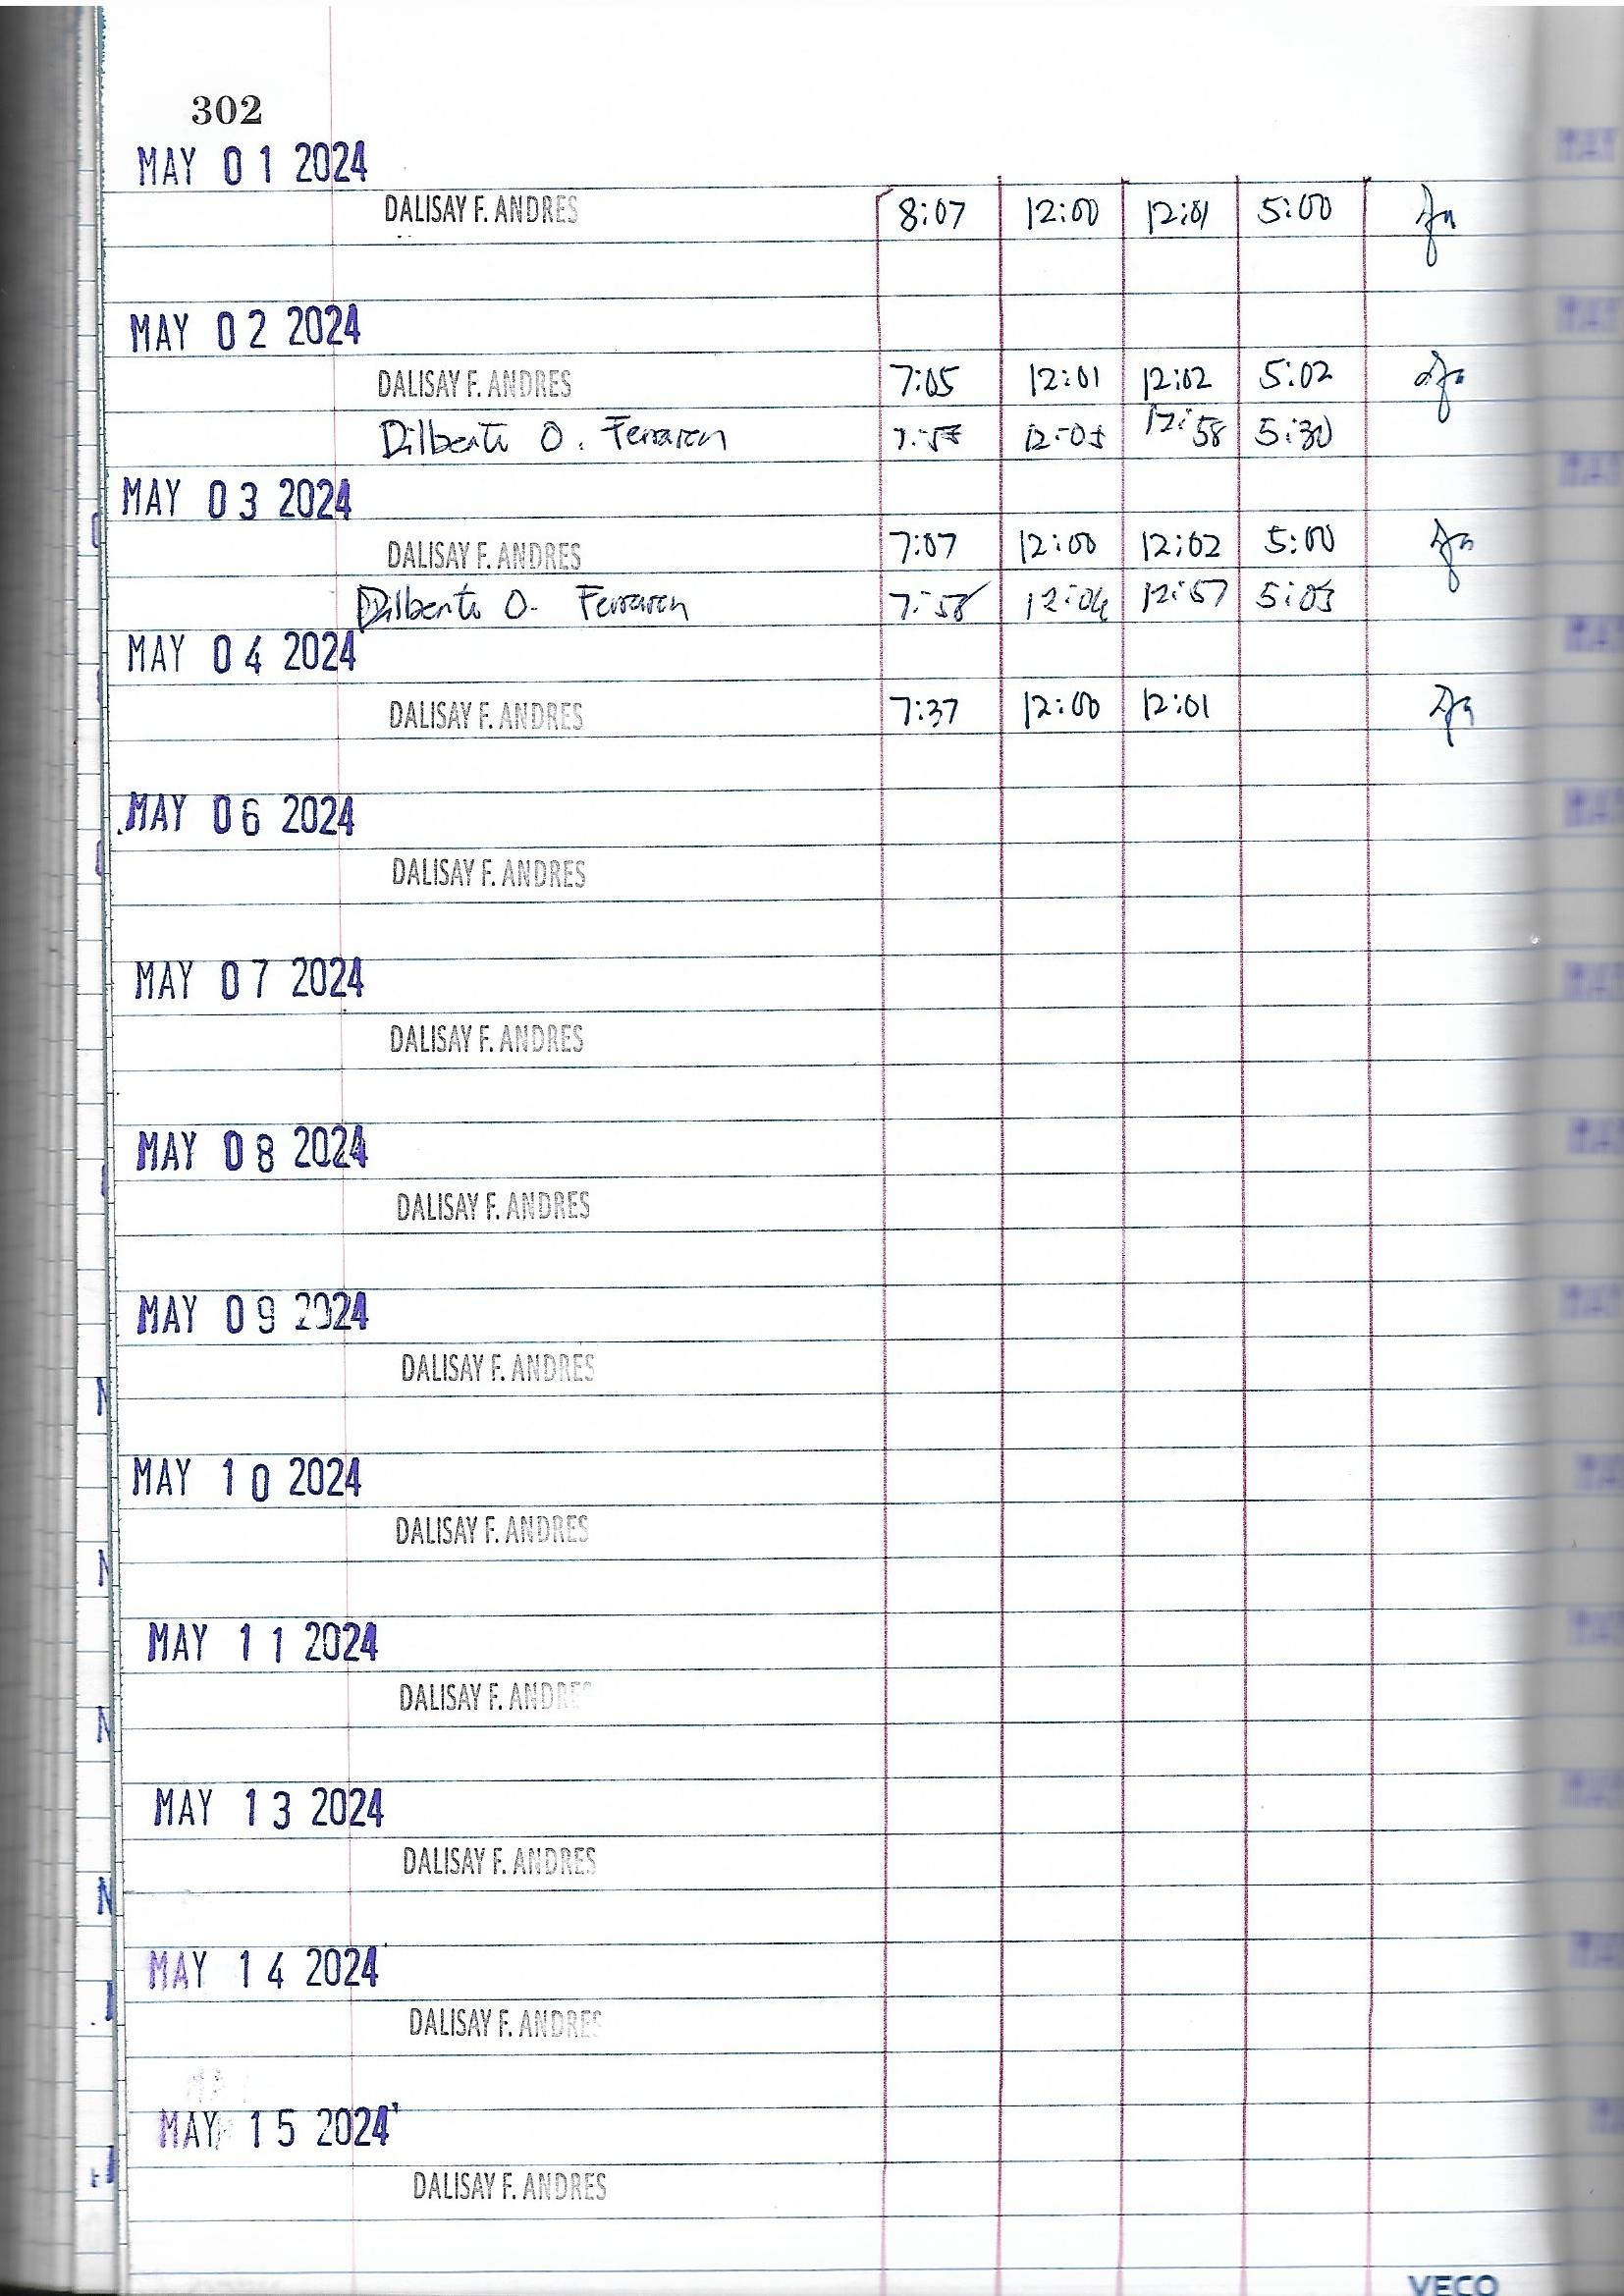 302
MAY 01 2024
DALISAY F. ANDRES 8:07 12:00 12:01 5:00
MAY 02 2024
DALISAY F. ANDRES 7:05 12:01 12:02 5:02
Dilberto O. Ferraren 12:05 12:58 5:30
MAY 03 2024
DALISAY F. ANDRES 7:07 12:00 12:02 5:00
Dilberto O. Ferraren 7:58 12:04 12:57 5:03
MAY 04 2024
DALISAY F. ANDRES 7:37 12:00 12:01
MAY 06 2024
DALISAY F. ANDRES
MAY 07 2024
DALISAY F. ANDRES
MAY 08 2024
DALISAY F. ANDRES
MAY 09 2024
DALISAY F. ANDRES
MAY 10 2024
DALISAY F. ANDRES
MAY 11 2024
DALISAY F. ANDRES
MAY 13 2024
DALISAY F. ANDRES
MAY 14 2024
DALISAY F. ANDRES
MAY 15 2024
DALISAY F. ANDRES
VECO